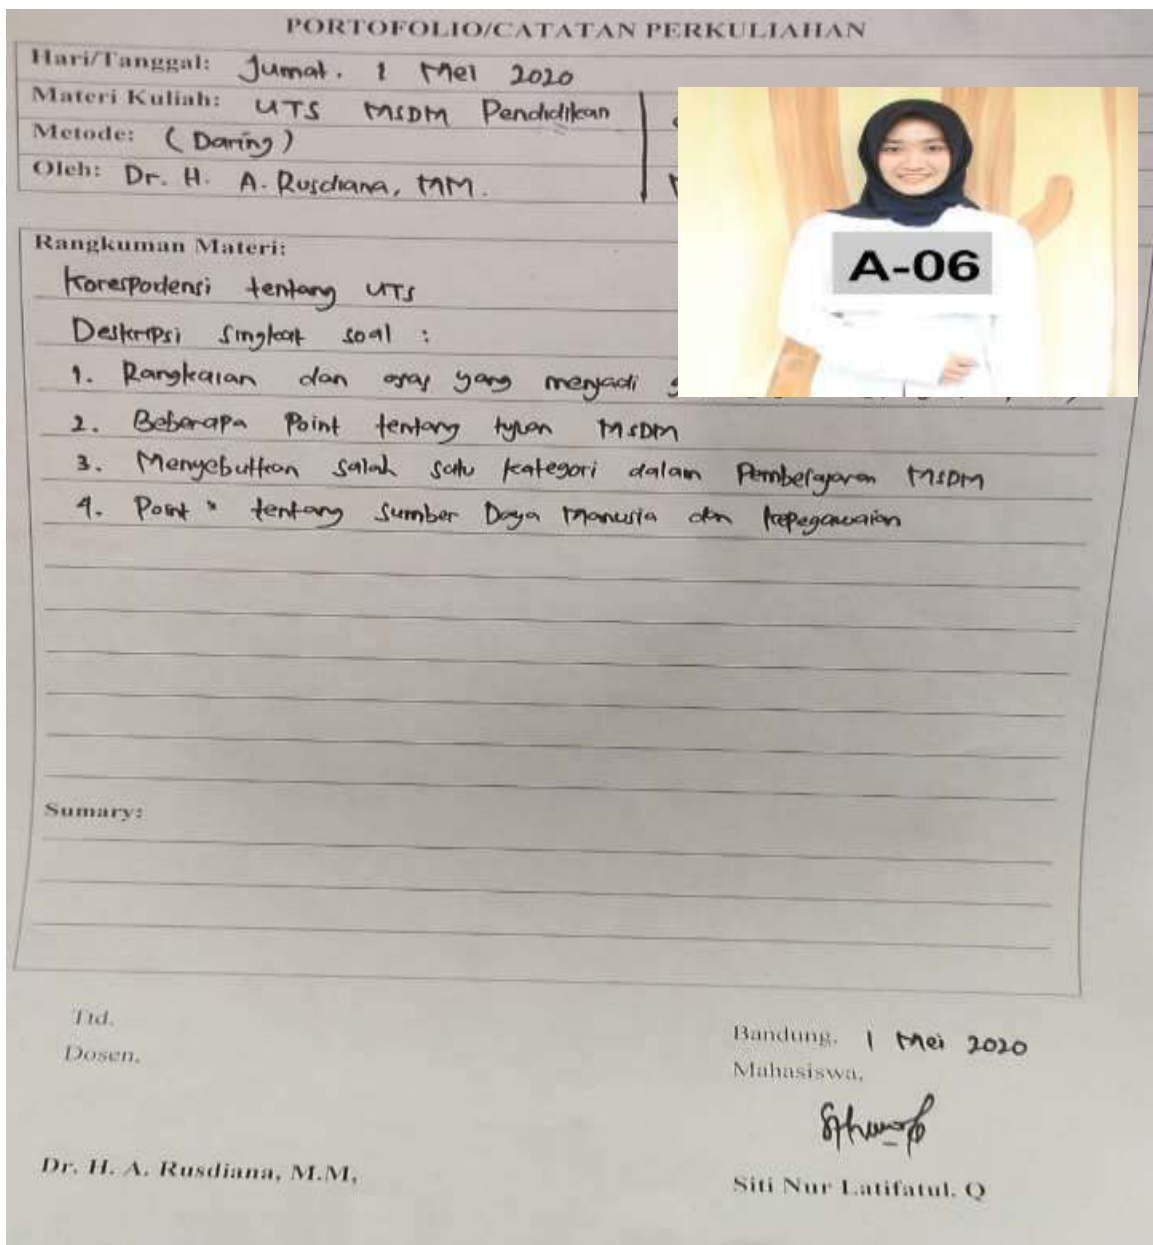 PORTOFOLIO/CATATAN PERKULIAHAN
Hari/Tanggal: Jumat. 1 Mei 2020
Materi Kuliah: UTS MSDM Pendidikan
Metode: (Daring)
Oleh: Dr. H. A. Rusdiana, MM.
A-06
Rangkuman Materi:
Korespodensi tentang UTS
Deskripsi singkat soal :
1. Rangkaian dan asas yang menjadi
2. Beberapa Point tentang MSDM
3. Menyebutkan salah satu kategori dalam Pembelajaran MSDM
4. Point " tentang Sumber Daya Manusia dan kepegawaian
Sumary:
Ttd.
Dosen,
Dr. H. A. Rusdiana, M.M,
Bandung, 1 Mei 2020
Mahasiswa,
Siti Nur Latifatul. Q